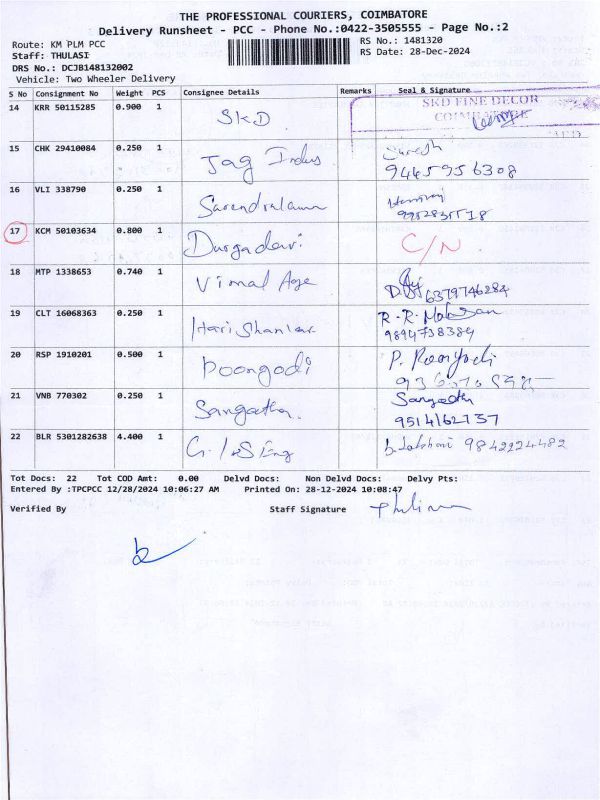 THE PROFESSIONAL COURIERS, COIMBATORE
Delivery Runsheet - PCC - Phone No.:0422-3505555 - Page No.:2
Route: KM PLM PCC
Staff: THULASI
DRS No.: DCJB148132002
Vehicle: Two Wheeler Delivery
RS No.: 1481320
RS Date: 28-Dec-2024
S No Consignment No Weight PCS Consignee Details Remarks Seal & Signature
14 KRR 50115285 0.900 1 SKD SKD FINE DECOR
COIMBATORE
15 CHK 29410084 0.250 1 Jag Indus Suresh
9445956308
16 VLI 338790 0.250 1
17 KCM 50103634 0.800 1 Durgadevi C/N
18 MTP 1338653 0.740 1 Vimal Age 6379746284
19 CLT 16068363 0.250 1 Hari Shankar R.R.
9894738384
20 RSP 1910201 0.500 1 Poongodi P. Poongodi
21 VNB 770302 0.250 1 Sangeetha. Sangeetha
9514162737
22 BLR 5301282638 4.400 1 9842224482
Tot Docs: 22 Tot COD Amt: 0.00 Delvd Docs: Non Delvd Docs: Delvy Pts:
Entered By :TPCPCC 12/28/2024 10:06:27 AM Printed On: 28-12-2024 10:08:47
Verified By Staff Signature